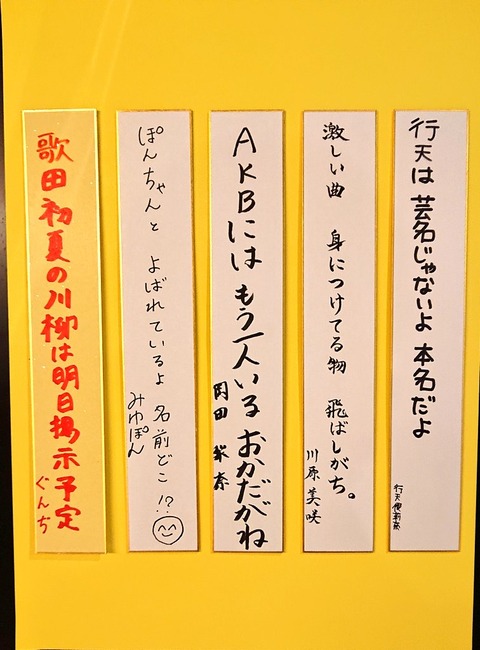 行天は 芸名じゃないよ 本名だよ
行天優莉奈
激しい曲 身につけてる物 飛ばしがち。
川原美咲
AKBには もう一人いる おかだがね
岡田梨奈
ぽんちゃんと よばれているよ 名前どこ!?
みゆぽん
歌田初夏の川柳は明日掲示予定
ぐんち